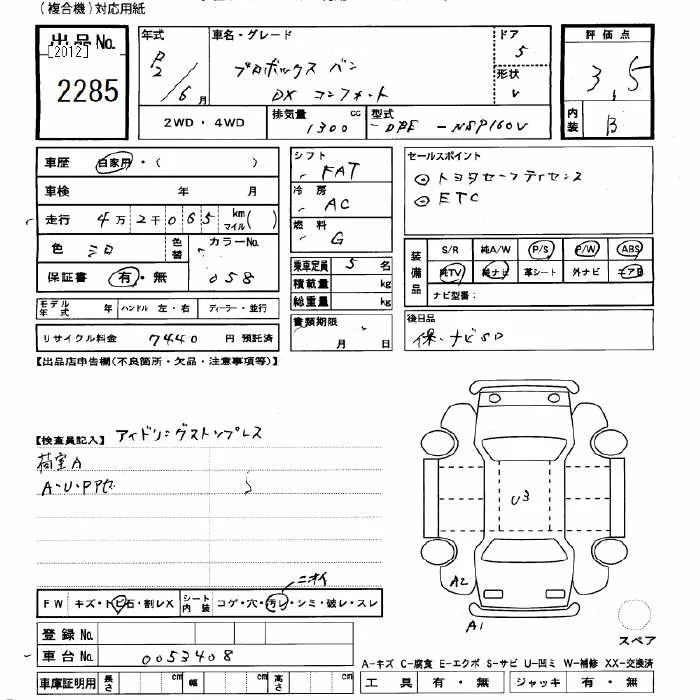 (複合機)対応用紙
出品No. [2012] 2285
年式 R2/6月
車名・グレード プロボックス バン DX コンフォート
ドア 5
形状 V
評価点 3.5
内装 B
2WD・4WD
排気量 1300 cc
型式 DBE-NSP160V
車歴 自家用・( )
車検 年 月
走行 4万2千065 km マイル( )
色 シロ 色替 カラーNo. 058
保証書 有・無
シフト FAT
冷房 AC
燃料 G
乗車定員 5名
積載量 kg
総重量 kg
書類期限 月 日
セールスポイント
◎トヨタセーフティセンス
◎ETC
装備品 S/R 純A/W P/S P/W ABS
純TV 純ナビ 革シート 外ナビ エアB
ナビ型番:
モデル年式 年 ハンドル 左・右 ディーラー・並行
リサイクル料金 7440 円 預託済
後日品
保・ナビSD
【出品店申告欄(不良箇所・欠品・注意事項等)】
【検査員記入】 アイドリングストップレス
荷室A
A・U・PP
U3
A2
A1
ニオイ
FW キズ・トビ石・割レX シート内装 コゲ・穴・汚レ・シミ・破レ・スレ
登録No.
車台No. 0053408
車庫証明用 長さ cm 幅 cm 高さ cm
スペア
A-キズ C-腐食 E-エクボ S-サビ U-凹ミ W-補修 XX-交換済
工具 有・無 ジャッキ 有・無